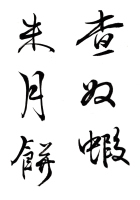 查奴蝦
朱月餅